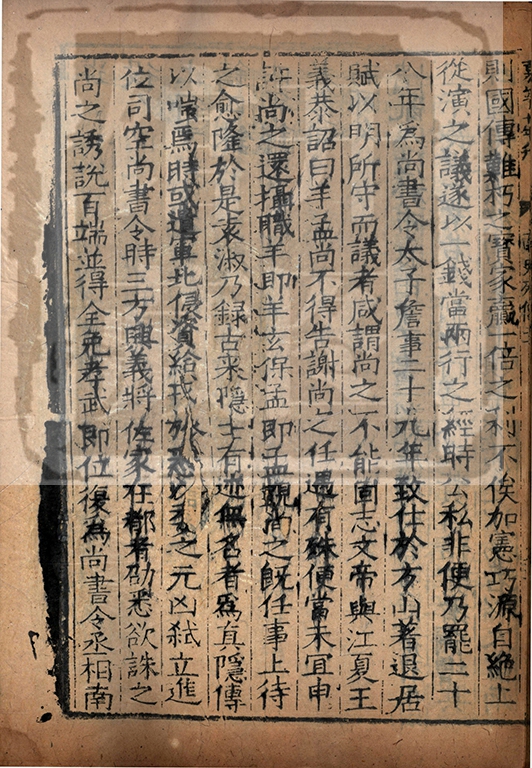 則國傳難朽之寶家贏一倍之利不俟加憲巧源自絶上
從演之議遂以一錢當兩行之經時公私非便乃罷二十
八年為尚書令太子詹事二十九年致仕於方山著退居
賦以明所守而議者咸謂尚之不能固志文帝與江夏王
義恭詔曰羊孟尚不得告謝尚之任遇有殊便當未宜申
許尚之還攝職羊即羊玄保孟即孟覬尚之既任事上待
之愈隆於是袁淑乃録古來隱士有迹無名者為真隱傳
以嗤焉時或遣軍北侵資給戎旅悉以委之元凶弑立進
位司空尚書令時三方興義將佐家在都者劭悉欲誅之
尚之誘說百端並得全免孝武即位復為尚書令丞相南